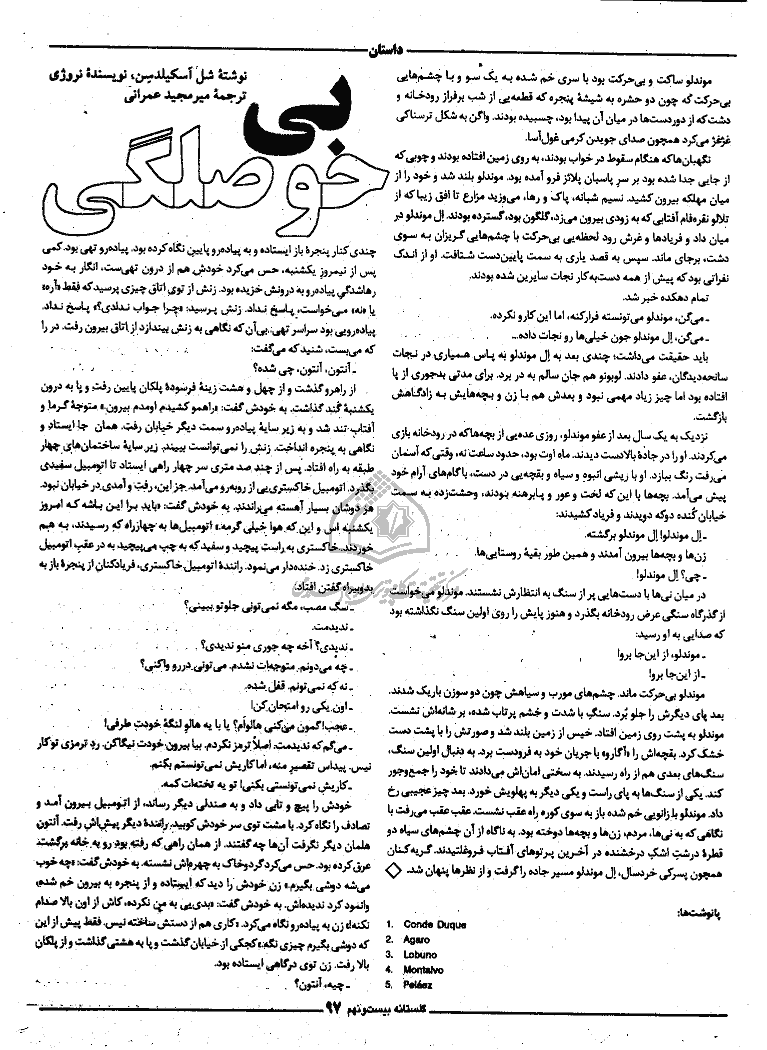 داستان
موندلو ساکت و بی‌حرکت بود با سری خم شده به یک سو و با چشم‌هایی
بی‌حرکت که چون دو حشره به شیشهٔ پنجره که قطعه‌یی از شب برفراز رودخانه و
دشت که از دوردست‌ها در میان آن پیدا بود، چسبیده بودند. واگن به شکل ترسناکی
غژغژ می‌کرد همچون صدای جویدن کرمی غول‌آسا.
نگهبان‌ها که هنگام سقوط در خواب بودند، به روی زمین افتاده بودند و چوبی که
از جایی جدا شده بود بر سر پاسبان پلائز فرو آمده بود. موندلو بلند شد و خود را از
میان مهلکه بیرون کشید. نسیم شبانه، پاک و رها، می‌وزید مزارع تا افق زیبا که از
تلالو نقره‌فام آفتابی که به زودی بیرون می‌زد، گلگون بود، گسترده بودند. اِل موندلو در
میان داد و فریادها و غرش رود لحظه‌یی بی‌حرکت با چشم‌هایی گریزان به سوی
دشت، برجای ماند. سپس به قصد یاری به سمت پایین‌دست شتافت. او از اندک
نفراتی بود که پیش از همه دست‌به‌کار نجات سایرین شده بودند.
تمام دهکده خبر شد.
ـ می‌گن، موندلو می‌تونسته فرارکنه، اما این کارو نکرده.
ـ می‌گن، اِل موندلو جون خیلی‌ها رو نجات داده...
باید حقیقت می‌داشت؛ چندی بعد به اِل موندلو به پاس همیاری در نجات
سانحه‌دیدگان، عفو دادند. لوبونو هم جان سالم به در برد. برای مدتی بدجوری از پا
افتاده بود اما چیز زیاد مهمی نبود و بعدش هم با زن و بچه‌هایش به زادگاهش
بازگشت.
نزدیک به یک سال بعد از عفو موندلو، روزی عده‌یی از بچه‌ها که در رودخانه بازی
می‌کردند. او را در جادهٔ بالادست دیدند. ماه اوت بود، حدود ساعت نه، وقتی که آسمان
می‌رفت رنگ ببازد. او با ریشی انبوه و سیاه و بقچه‌یی در دست، با گام‌های آرام خود
پیش می‌آمد. بچه‌ها با این که لخت و عور و پابرهنه بودند، وحشت‌زده به سمت
خیابان کُنده دوکه دویدند و فریاد کشیدند:
ـ اِل موندلو! اِل موندلو برگشته.
زن‌ها و بچه‌ها بیرون آمدند و همین طور بقیهٔ روستایی‌ها.
ـ چی؟ اِل موندلو!
در میان نی‌ها با دست‌هایی پر از سنگ به انتظارش نشستند. موندلو می‌خواست
از گذرگاه سنگی عرض رودخانه بگذرد و هنوز پایش را روی اولین سنگ نگذاشته بود
که صدایی به او رسید:
ـ موندلو، از این‌جا برو!
ـ از این‌جا برو!
موندلو بی‌حرکت ماند. چشم‌های مورب و سیاهش چون دو سوزن باریک شدند.
بعد پای دیگرش را جلو بُرد. سنگی با شدت و خشم پرتاب شده، بر شانه‌اش نشست.
موندلو به پشت روی زمین افتاد. خیس از زمین بلند شد و صورتش را با پشت دست
خشک کرد. بقچه‌اش را «آگارو» با جریان خود به فرودست برد. به دنبال اولین سنگ،
سنگ‌های بعدی هم از راه رسیدند. به سختی امان‌اش می‌دادند تا خود را جمع‌وجور
کند. یکی از سنگ‌ها به پای راست و یکی دیگر به پهلویش خورد. بعد چیز عجیبی رخ
داد. موندلو با زانویی خم شده باز به سوی کوره راه عقب نشست. عقب عقب می‌رفت با
نگاهی که به نی‌ها، مردم، زن‌ها و بچه‌ها دوخته بود. به ناگاه از آن چشم‌های سیاه دو
قطرهٔ درشتِ اشک درخشنده در آخرین پرتوهای آفتاب فروغلتیدند. گریه‌کنان
همچون پسرکی خردسال، اِل موندلو مسیر جاده را گرفت و از نظرها پنهان شد.
پانوشت‌ها:
1. Conde Duque
2. Agaro
3. Lobuno
4. Montalvo
5. Peláez
نوشتهٔ شل آسکیلدسن، نویسندهٔ نروژی
ترجمهٔ میرمجید عمرانی
بی
حوصلگی
چندی کنار پنجرهٔ باز ایستاده و به پیاده‌رو پایین نگاه کرده بود. پیاده‌رو تهی بود. کمی
پس از نیمروز یکشنبه، حس می‌کرد خودش هم از درون تهی‌ست، انگار به خود
رهاشدگیِ پیاده‌رو به درونش خزیده بود. زنش از توی اتاق چیزی پرسید که فقط «آره»
یا «نه» می‌خواست، پاسخ نداد. زنش پرسید: «چرا جواب ندادی؟» پاسخ نداد.
پیاده‌رویی بود سراسر تهی. بی‌آن که نگاهی به زنش بیندازد از اتاق بیرون رفت. در را
که می‌بست، شنید که می‌گفت:
ـ آنتون، آنتون، چی شده؟
از راهرو گذشت و از چهل و هشت زینهٔ فرسودهٔ پلکان پایین رفت و پا به درون
یکشنبهٔ کُند گذاشت. به خودش گفت: «راهمو کشیدم اومدم بیرون.» متوجهٔ گرما و
آفتاب تند شد و به زیر سایهٔ پیاده‌رو سمت دیگر خیابان رفت. همان جا ایستاد و
نگاهی به پنجره انداخت. زنش را نمی‌توانست ببیند. زیر سایهٔ ساختمان‌های چهار
طبقه به راه افتاد. پس از چند صد متری سر چهار راهی ایستاد تا اتومبیل سفیدی
بگذرد. اتومبیل خاکستری‌یی از روبه‌رو می‌آمد. جز این، رفت و آمدی در خیابان نبود.
هر دوشان بسیار آهسته می‌راندند. به خودش گفت: «باید برا این باشه که امروز
یکشنبه اس و این که هوا خیلی گرمه.» اتومبیل‌ها به چهارراه که رسیدند، به هم
خوردند. خاکستری به راست پیچید و سفید که به چپ می‌پیچید به در عقبِ اتومبیل
خاکستری زد. خنده‌دار می‌نمود. رانندهٔ اتومبیل خاکستری، فریادکنان از پنجرهٔ باز به
بدوبیراه گفتن افتاد:
ـ سگ مصب، مگه نمی‌تونی جلوتو ببینی؟
ـ ندیدمت.
ـ ندیدی؟ آخه چه جوری منو ندیدی؟
ـ چه می‌دونم. متوجه‌ات نشدم. می‌تونی دررو واکنی؟
ـ نه که نمی‌تونم. قفل شده.
ـ اون یکی رو امتحان کن!
ـ عجب! گمون می‌کنی هالوام؟ یا با یه هالو لنگهٔ خودت طرفی!
ـ می‌گم که ندیدمت. اصلاً ترمز نکردم. بیا بیرون خودت نیگاکن. ردِ ترمزی تو کار
نیس. پیداس تقصیر منه، اما کاریش نمی‌تونستم بکنم.
ـ کاریش نمی‌تونستی بکنی! تو یه تخته‌ات کمه.
خودش را پیچ و تابی داد و به صندلی دیگر رساند، از اتومبیل بیرون آمد و
تصادف را نگاه کرد. با مشت توی سر خودش کوبید. رانندهٔ دیگر پیش‌اش رفت. آنتون
همان دیگر نگرفت آن‌ها چه گفتند. از همان راهی که رفته بود رو به خانه برگشت.
عرق کرده بود. حس می‌کرد گردوخاک به چهره‌اش نشسته. به خودش گفت: «چه خوب
می‌شه دوشی بگیرم.» زن خودش را دید که ایستاده و از پنجره به بیرون خم شده،
وانمود کرد ندیده‌اش. به خودش گفت: «بدی‌یی به من نکرده، کاش از اون بالا صدام
نکنه!» زن به پیاده‌رو نگاه می‌کرد. «کاری هم از دستش ساخته نیس. فقط پیش از این
که دوشی بگیرم چیزی نگه.» کجکی از خیابان گذشت و پا به هشتی گذاشت و از پلکان
بالا رفت. زن توی درگاهی ایستاده بود.
ـ چیه، آنتون؟
گلستانه بیست‌ونهم ۹۷